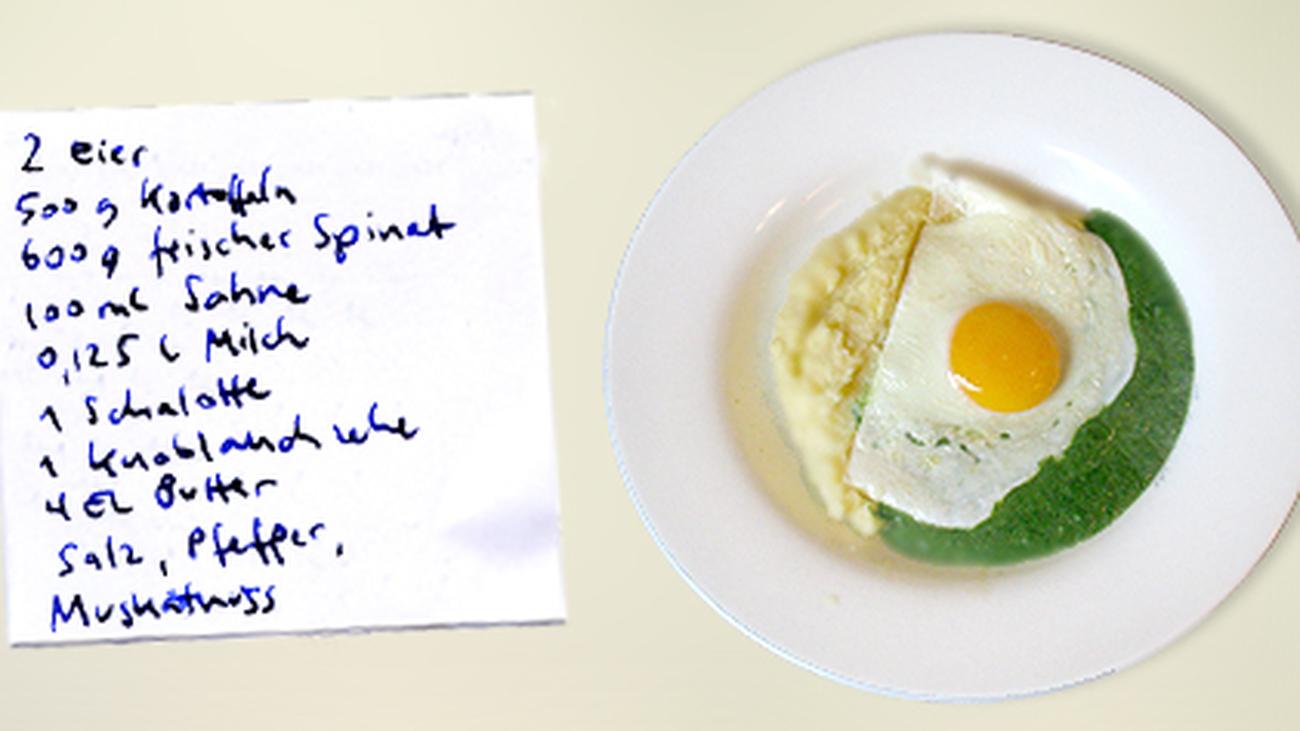 2 eier
500 g Kartoffeln
600 g frischer Spinat
100 ml Sahne
0,125 l Milch
1 Schalotte
1 Knoblauchzehe
4 EL Butter
Salz, Pfeffer,
Muskatnuss